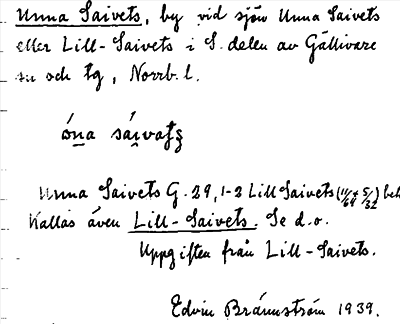 Unna Saivets, by vid sjön Unna Saivets
eller Lill-Saivets i S. delen av Gällivare
sn och tg, Norrb. l.
Unna Saivets G. 29, 1-2 Lill Saivets (11/64 + 5/32) beb
Kallas även Lill-Saivets. Se d.o.
Uppgiften från Lill-Saivets.
Edvin Brännström 1939.